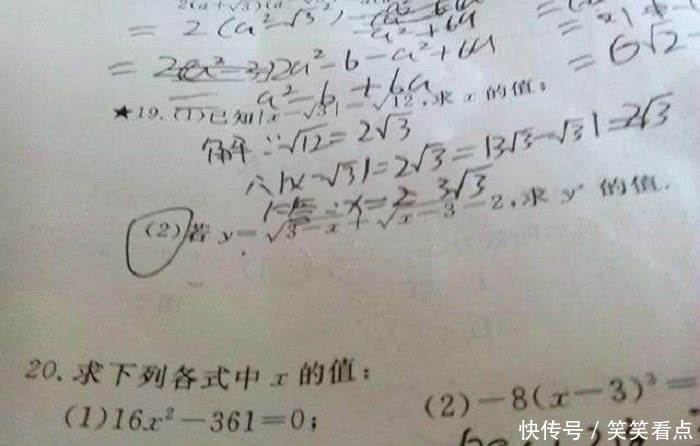 = 2(a²-√3)
-a²+6a
= 2a²-6-a²+6a
= 6√2
a²-6+6a
★19.(1)已知|x-√3|=√12,求x的值;
解:∵√12=2√3
∴|x-√3|=2√3=|3√3-√3|=2√3
∴x= 3√3
(2)若y=√3-x+√x-3-2,求yˣ的值.
20.求下列各式中x的值:
(1)16x²-361=0;
(2)-8(x-3)³=
快传号/笑笑看点